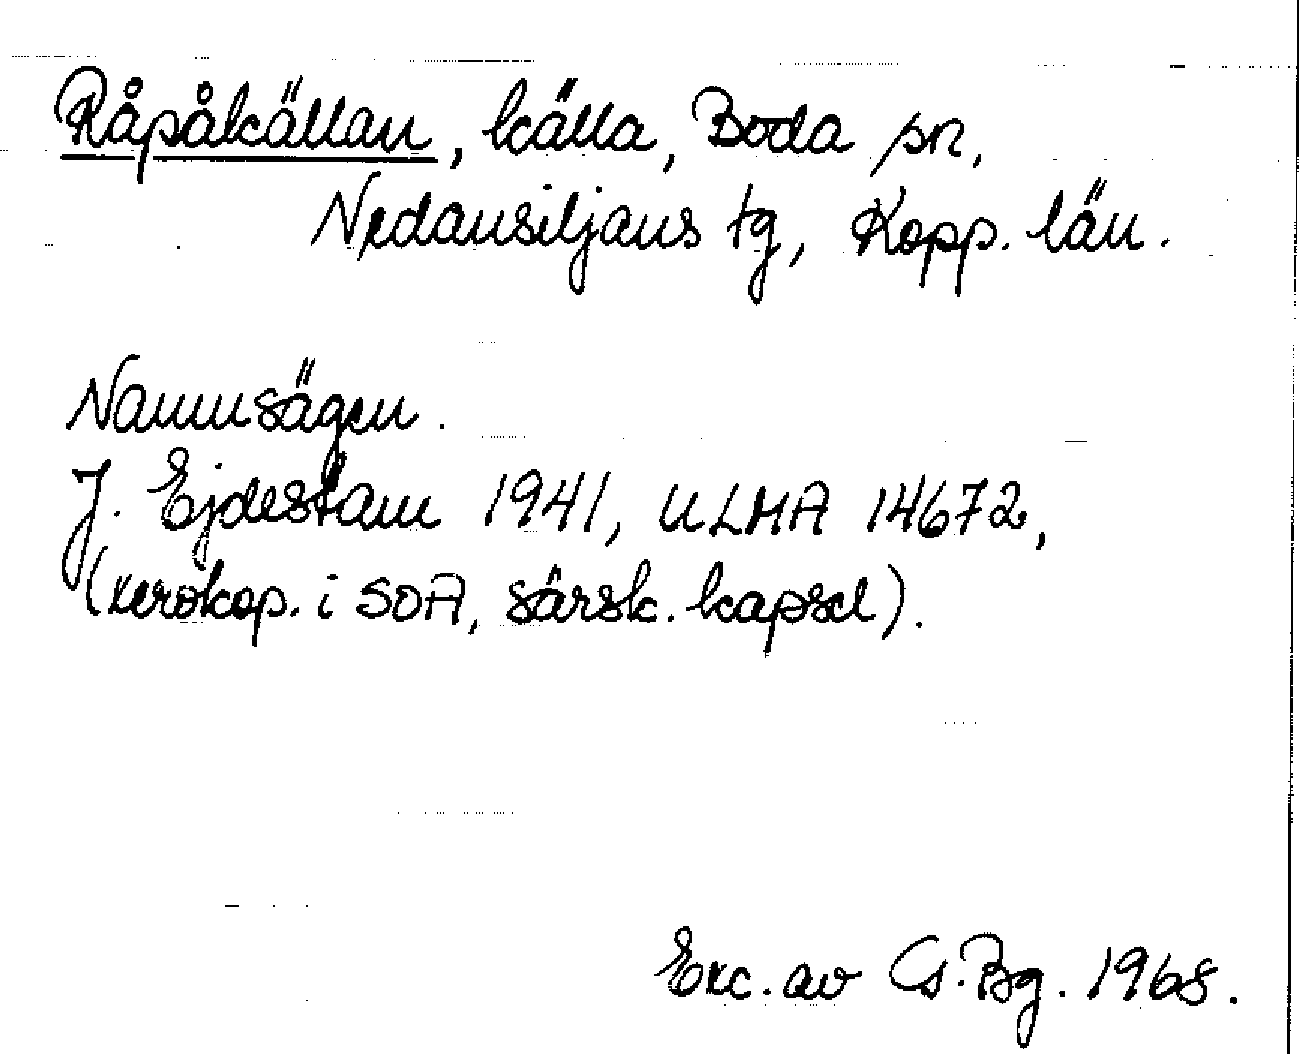 Råpåkällan, källa, Boda sn,
Nedansiljans tg, Kopp. län.
Namnsägen.
J. Ejdestam 1941, ULMA 14672,
(xerokop. i SOA, särsk. kapsel).
Exc. av G. Bg. 1968.